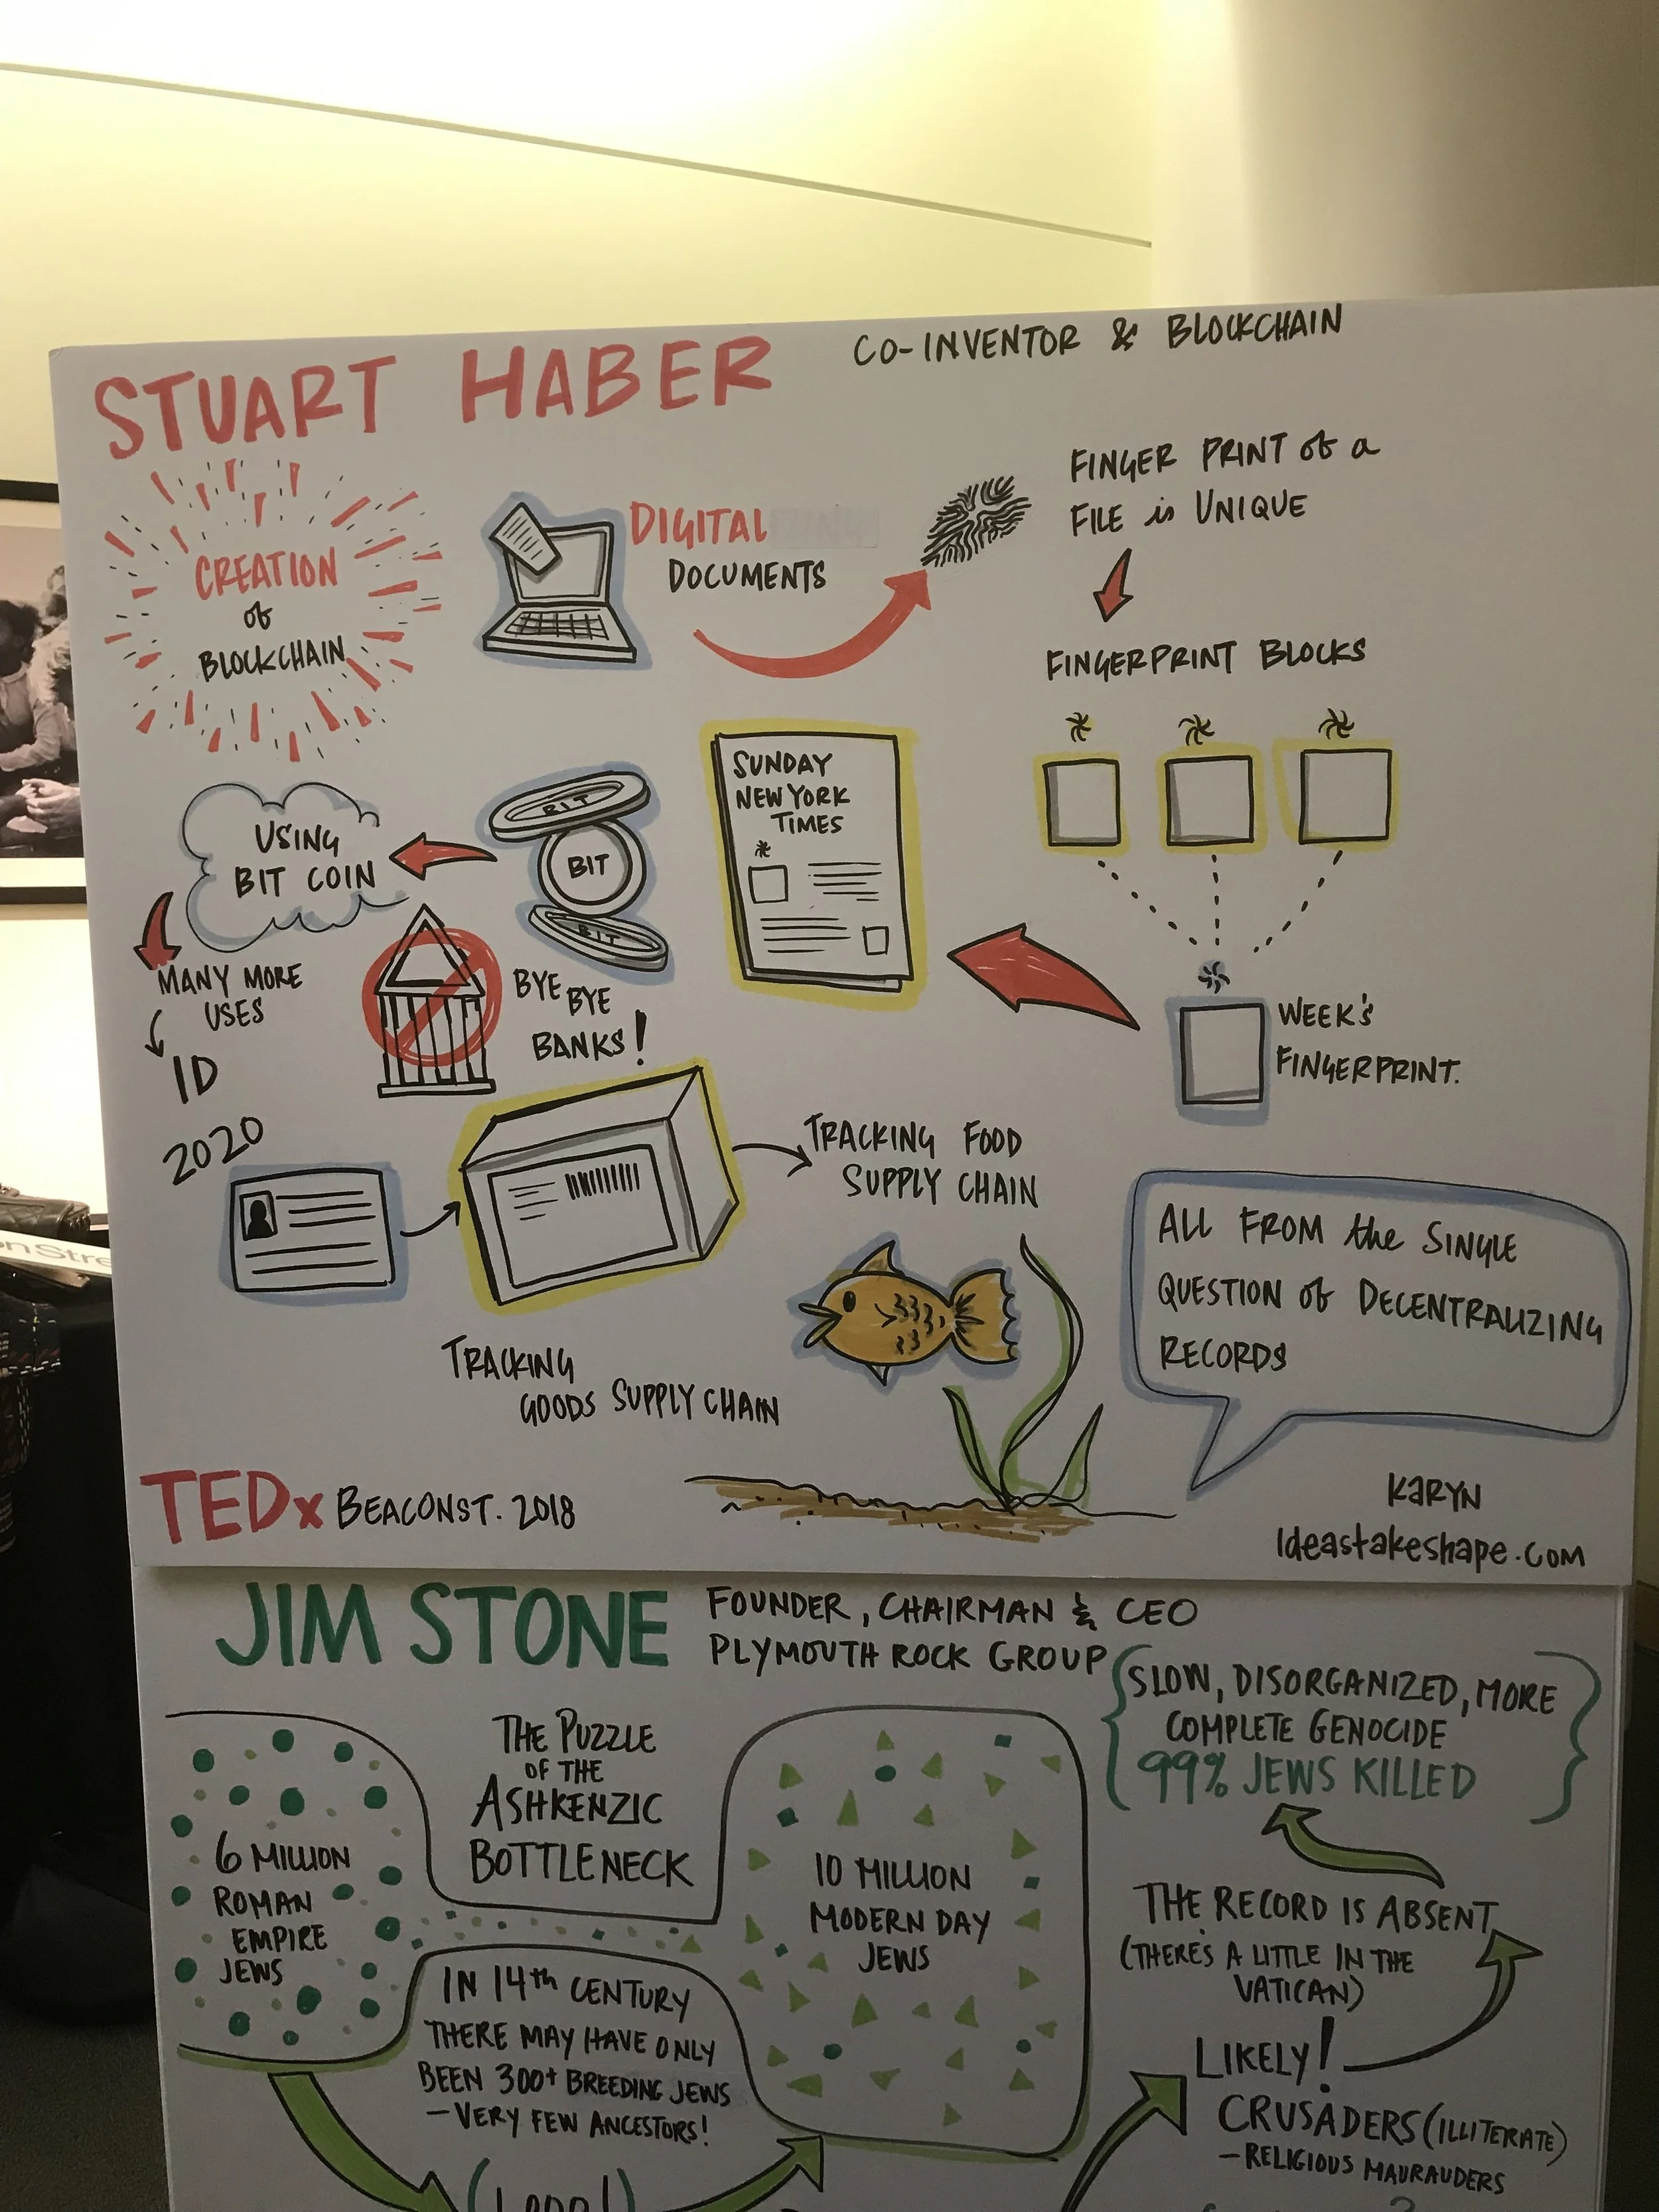 STUART HABER
CO-INVENTOR & BLOCKCHAIN
CREATION
of
BLOCKCHAIN
DIGITAL
DOCUMENTS
FINGER PRINT of a
FILE is UNIQUE
FINGERPRINT BLOCKS
WEEK'S
FINGERPRINT.
SUNDAY
NEW YORK
TIMES
BIT
BIT
BIT
USING
BIT COIN
BYE BYE
BANKS!
MANY MORE
USES
ID
2020
TRACKING
GOODS SUPPLY CHAIN
TRACKING FOOD
SUPPLY CHAIN
ALL FROM the SINGLE
QUESTION of DECENTRALIZING
RECORDS
TEDx BEACONST. 2018
KARYN
Ideastakeshape.com
JIM STONE
FOUNDER, CHAIRMAN & CEO
PLYMOUTH ROCK GROUP
THE PUZZLE
OF THE
ASHKENZIC
BOTTLENECK
6 MILLION
ROMAN
EMPIRE
JEWS
IN 14th CENTURY
THERE MAY HAVE ONLY
BEEN 300+ BREEDING JEWS
- VERY FEW ANCESTORS!
10 MILLION
MODERN DAY
JEWS
SLOW, DISORGANIZED, MORE
COMPLETE GENOCIDE
99% JEWS KILLED
THE RECORD IS ABSENT
(THERE'S A LITTLE IN THE
VATICAN)
LIKELY!
CRUSADERS (ILLITERATE)
- RELIGIOUS MAURAUDERS